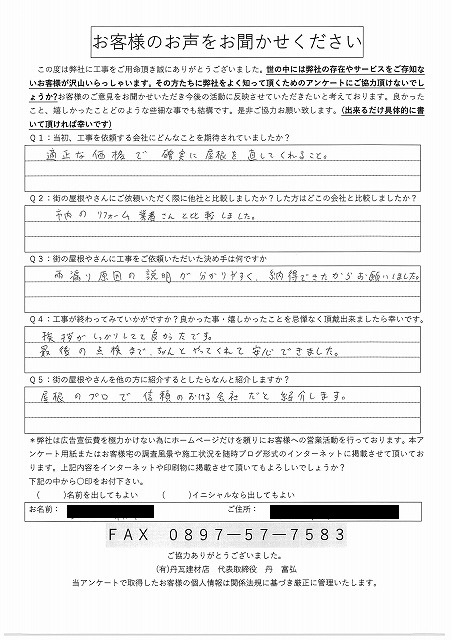 お客様のお声をお聞かせください
この度は弊社に工事をご用命頂き誠にありがとうございました。世の中には弊社の存在やサービスをご存知
ないお客様が沢山いらっしゃいます。その方たちに弊社をよく知って頂くためのアンケートにご協力頂けないで
しょうか?お客様のご意見をお聞かせいただき今後の活動に反映させていただきたいと考えております。良かった
こと、嬉しかったことどのような些細な事でも結構です。是非ご協力お願い致します。(出来るだけ具体的に書
いて頂ければ幸いです)
Q1:当初、工事を依頼する会社にどんなことを期待されていましたか?
適正な価格で 確実に屋根を直してくれること。
Q2:街の屋根やさんにご依頼いただく際に他社と比較しましたか?した方はどこの会社と比較しましたか?
市内のリフォーム業者さんと比較しました。
Q3:街の屋根やさんに工事をご依頼いただいた決め手は何ですか
雨漏り原因の説明が分かりやすく、納得できたからお願いしました。
Q4:工事が終わってみていかがですか?良かった事・嬉しかったことを忌憚なく頂戴出来ましたら幸いです。
挨拶がしっかりしてて良かったです。
最後の点検まで、ちゃんとやってくれて安心できました。
Q5:街の屋根やさんを他の方に紹介するとしたらなんと紹介しますか?
屋根のプロで信頼のおける会社だと紹介します。
*弊社は広告宣伝費を極力かけない為にホームページだけを頼りにお客様への営業活動を行っております。本ア
ンケート用紙またはお客様宅の調査風景や施工状況を随時ブログ形式のインターネットに掲載させて頂いてお
ります。上記内容をインターネットや印刷物に掲載させて頂いてもよろしいでしょうか?
下記の中から〇印をお付下さい。
( )名前を出してもよい ( )イニシャルなら出してもよい
お名前: ご住所:
FAX 0897-57-7583
ご協力ありがとうございました。
(有)丹瓦建材店 代表取締役 丹 富弘
当アンケートで取得したお客様の個人情報は関係法規に基づき厳正に管理いたします。